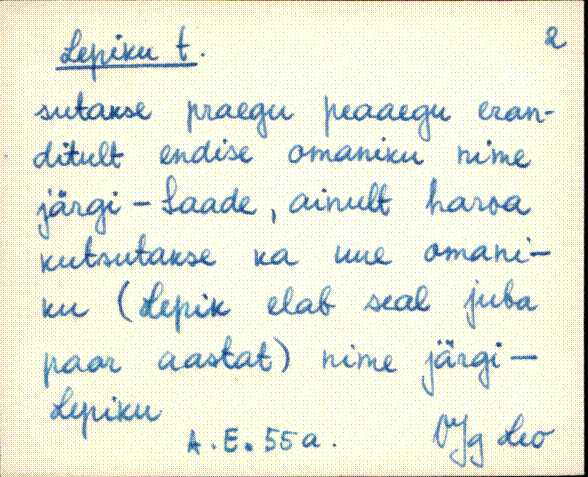 Lepiku t. 2
sutakse praegu peaaegu eran-
ditult endise omaniku nime
järgi – Saade, ainult harva
kutsutakse ka uue omani-
ku (Lepik elab seal juba
paar aastat) nime järgi –
Lepiku
A. E. 55a. VJg Leo